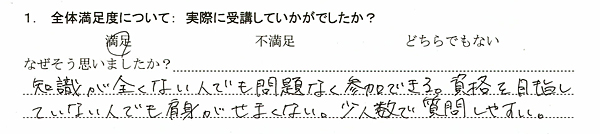 1. 全体満足度について: 実際に受講していかがでしたか?
満足 不満足 どちらでもない
なぜそう思いましたか?
知識が全くない人でも問題なく参加できる。資格を目指し
ていない人でも肩身がせまくない。少人数で質問しやすい。